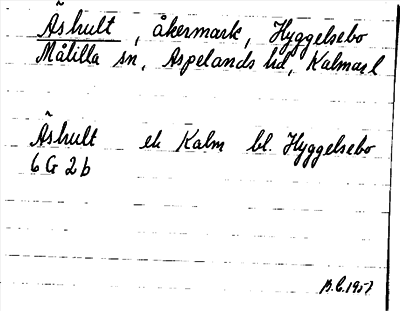 Äshult, åkermark, Hyggelsebo
Målilla sn, Aspelands hd, Kalmar l
Äshult ek Kalm bl. Hyggelsebo
6 G 2b